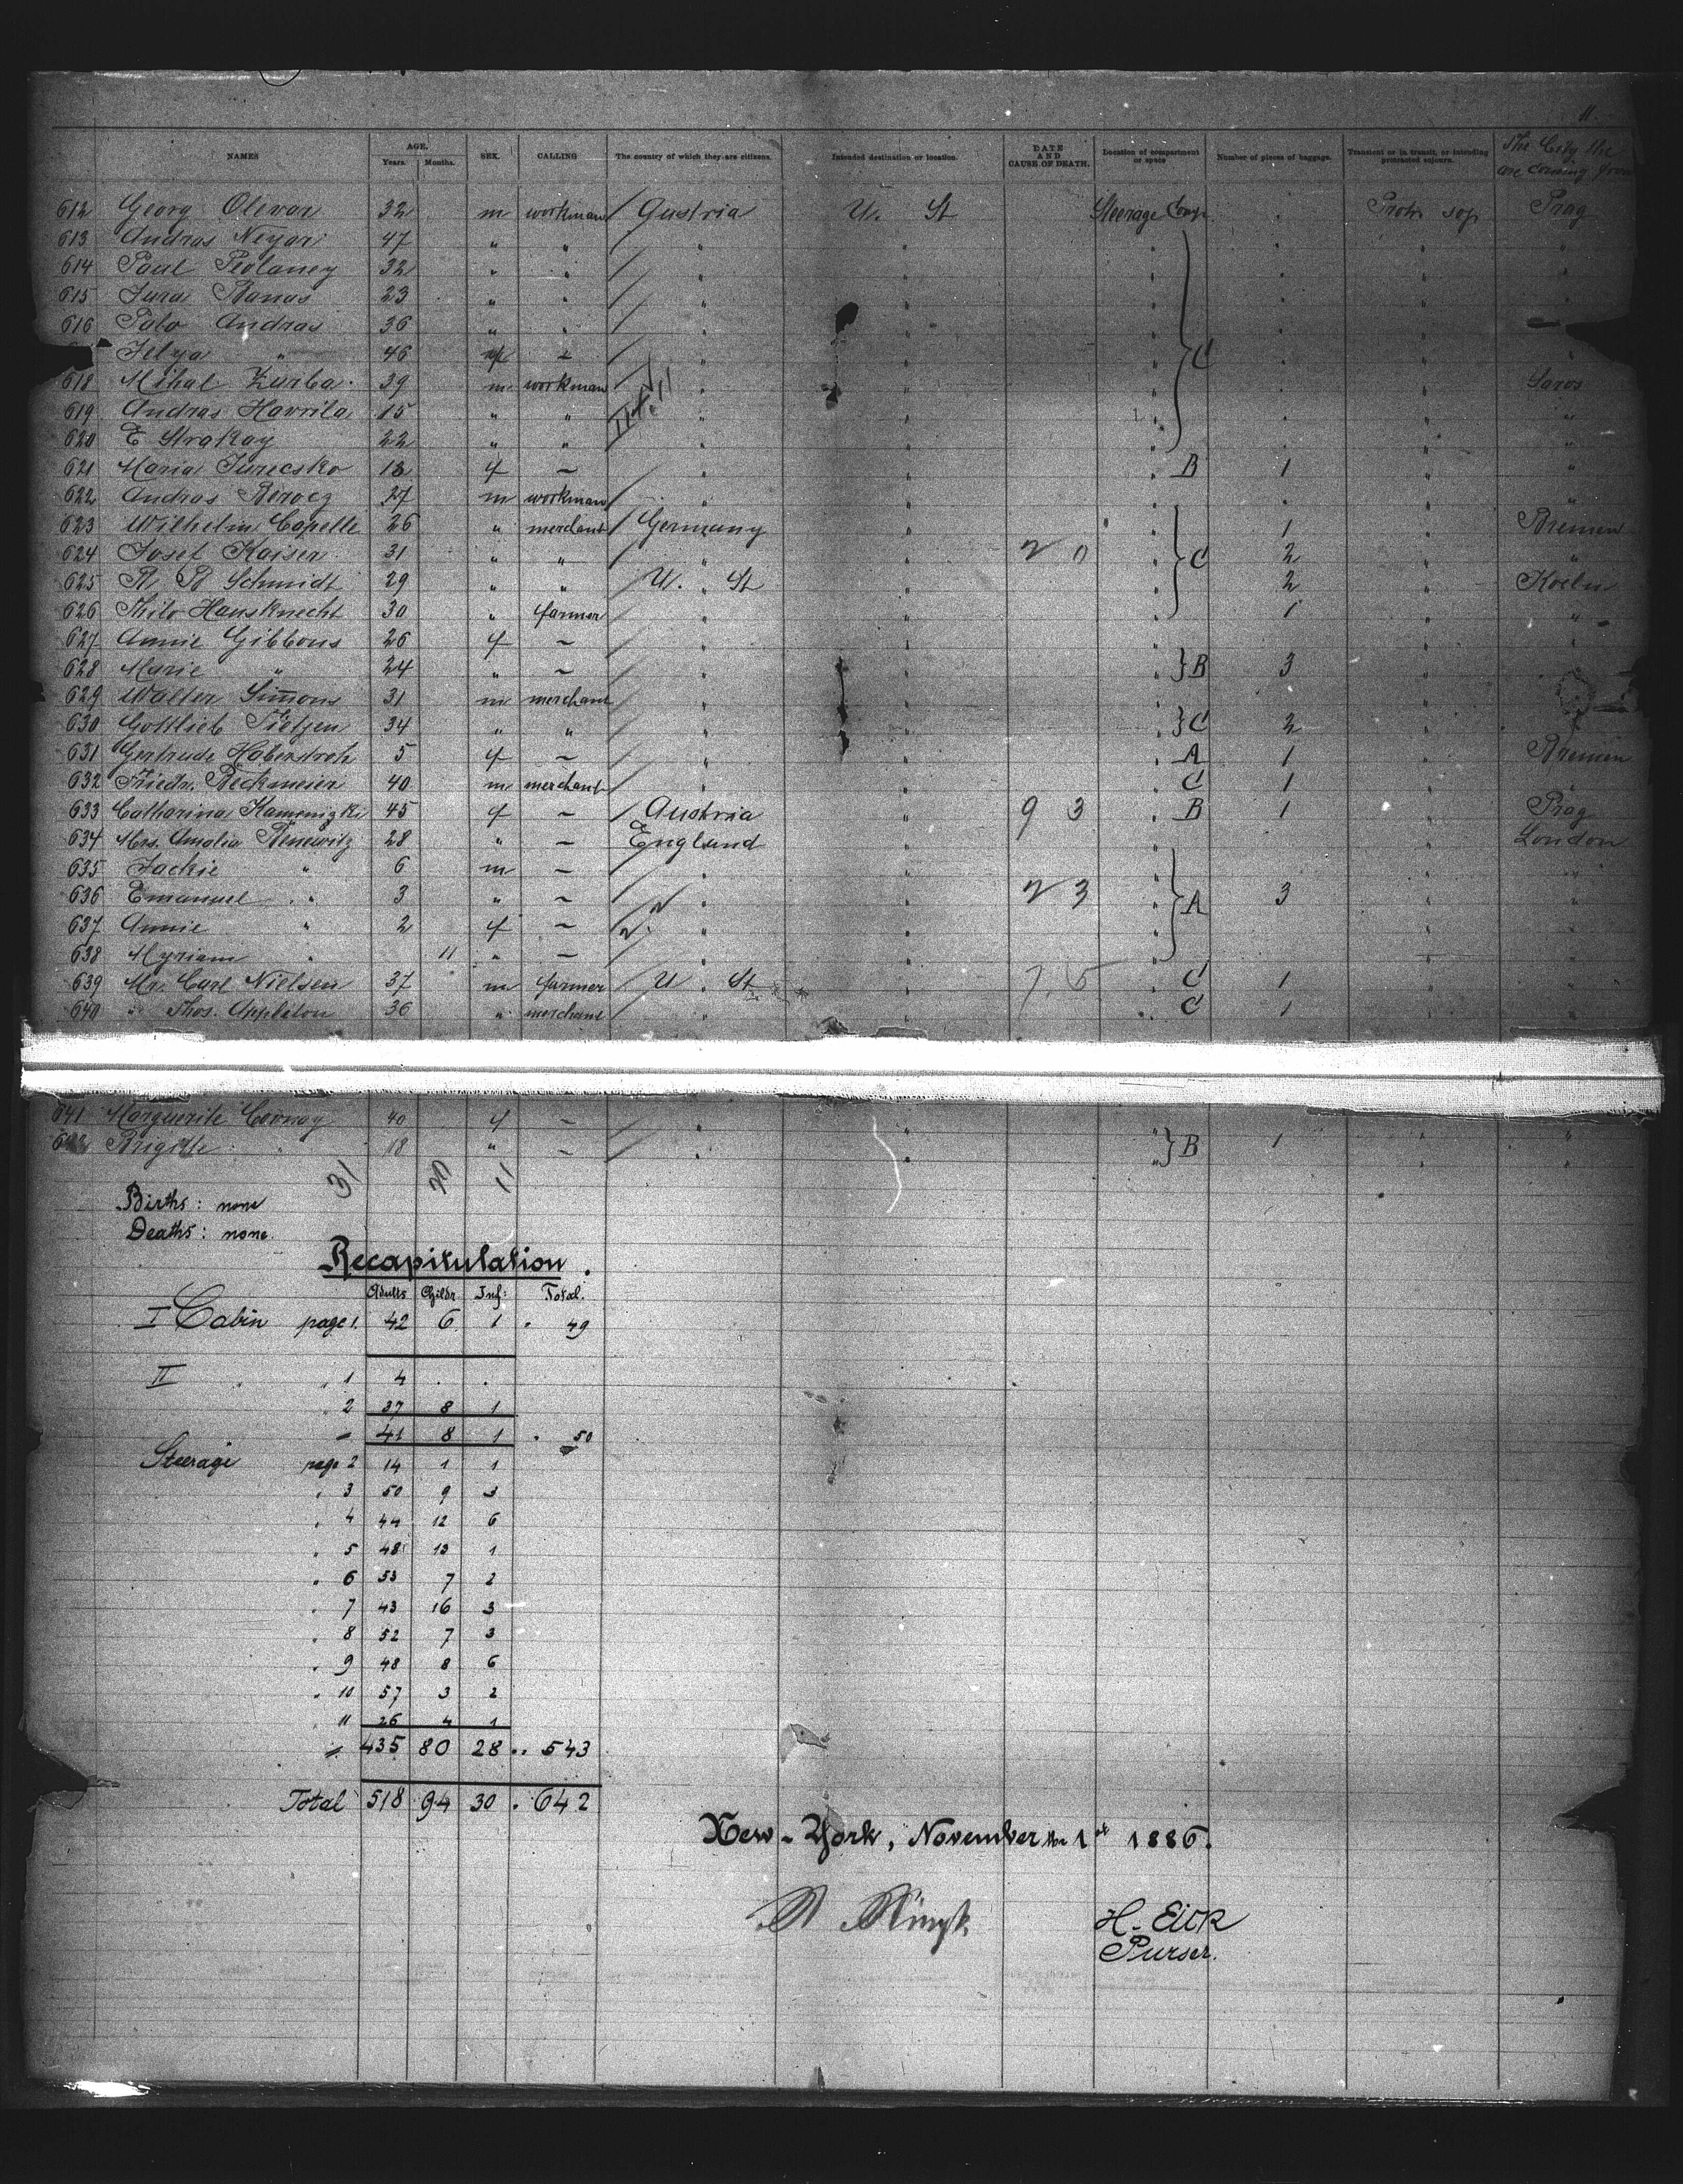 11.
NAMES AGE. Years. Months. SEX. CALLING The country of which they are citizens. Intended destination or location. DATE AND CAUSE OF DEATH. Location of compartment or space Number of pieces of baggage. Transient or in transit, or intending protracted sojourn. The City the are coming from
612 Georg Olevar 32 m workman Austria U. St Steerage Comp. Protr. soj. Prag
613 Andras Neyar 47 " " " " " " "
614 Paul 32 " " " " " " "
615 Jura Banas 23 " " " " " " "
616 Palo Andras 36 " " " " " "
Ilya " 46 f - " " " C " "
618 Mihal Zurba 39 m workman " " " " Saros
619 Andras Havrila 15 " " " " " " "
620 E Strakay 22 " " " " " " "
621 Maria Jurecsko 18 f - " " " B 1 " "
622 Andras 27 m workman " " " " "
623 Wilhelm Capelle 26 " merchant Germany " " 1 " Bremen
624 Josef Kaiser 31 " " " " 20 " C 2 " "
625 R. R Schmidt 29 " " U. St " " 2 " Koeln
626 Thilo Hausknecht 30 " farmer " " " 1 " "
627 Annie Gibbons 26 f - " " " " "
628 Marie " 24 " - " " " B 3 "
629 Walter Simons 31 m merchant " " " "
630 Gottlieb Tietjen 34 " " " " " C 2 "
631 Gertrude Haberstroh 5 f - " " " A 1 " Bremen
632 Friedr. Beckmeier 40 m merchant " " " C 1 " "
633 Catharina Kamenizki 45 f - Austria " 93 " B 1 " Prag
634 Mrs. Amalia Benewitz 28 " - England " " " London
635 Jackie " 6 m - " " " " "
636 Emanuel " 3 " - " " 23 " A 3 " "
637 Annie " 2 f - " " " " "
638 Myriam " 11 " - " " " " "
639 Mr. Carl Nielsen 37 m farmer U. St " 7.5 " C 1 " "
640 " Thos. Appleton 36 " merchant " " " C 1 " "
641 Marguerite Cornay 40 f - " " " " "
642 Brigitte " 18 " - " " " B 1 " "
31 20 11
Births: none
Deaths: none.
Recapitulation.
Adults Childr. Inf: Total.
I Cabin page 1. 42 6 1 . 49
II " " 1 4 . .
" 2 37 8 1
" 41 8 1 . 50
Steerage page 2 14 1 1
" 3 50 9 3
" 4 44 12 6
" 5 48 13 1
" 6 53 7 2
" 7 43 16 3
" 8 52 7 3
" 9 48 8 6
" 10 57 3 2
" 11 26 4 1
" 435 80 28 .. 543
Total 518 94 30 . 642
New-York, November the 1st 1886.
H. Eick
Purser.